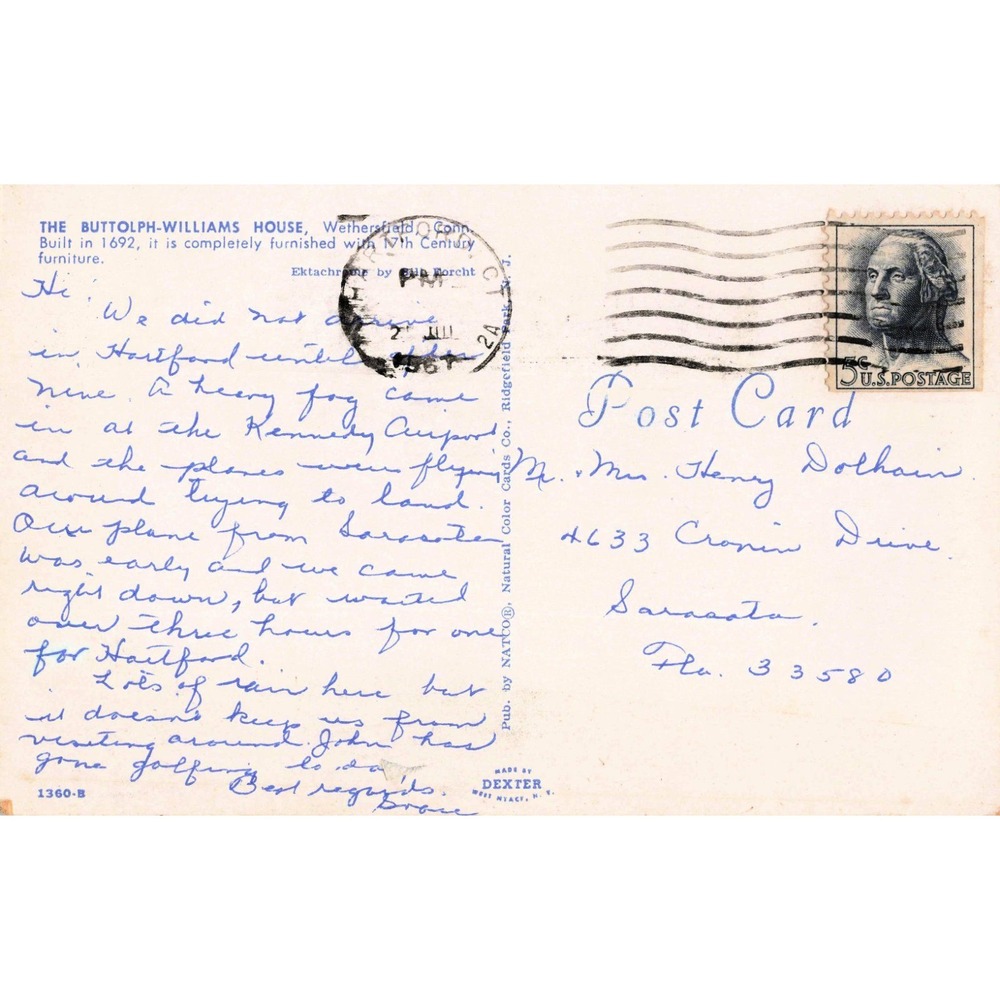 THE BUTTOLPH-WILLIAMS HOUSE, Wethersfield, Conn.
Built in 1692, it is completely furnished with 17th Century
furniture.
Ektachrome by
Hi!
We did not arrive
in Hartford until after
nine. A heavy fog came
in at the Kennedy Airport
and the planes were flying
around trying to land.
Our plane from Sarasota
was early and we came
right down, but waited
over three hours for one
for Hartford.
Lots of rain here but
it doesn't keep us from
visiting around. John has
gone golfing to-day.
Best regards.
Grace
1360-B
Pub. by NATCO®, Natural Color Cards Co., Ridgefield Park, N. J.
HARTFORD, CT
PM
1967
2A
5¢ U.S. POSTAGE
Post Card
Mr. & Mrs. Henry Dolhain.
4633 Cronin Drive.
Sarasota.
Fla. 33580
MADE BY
DEXTER
WEST NYACK, N. Y.